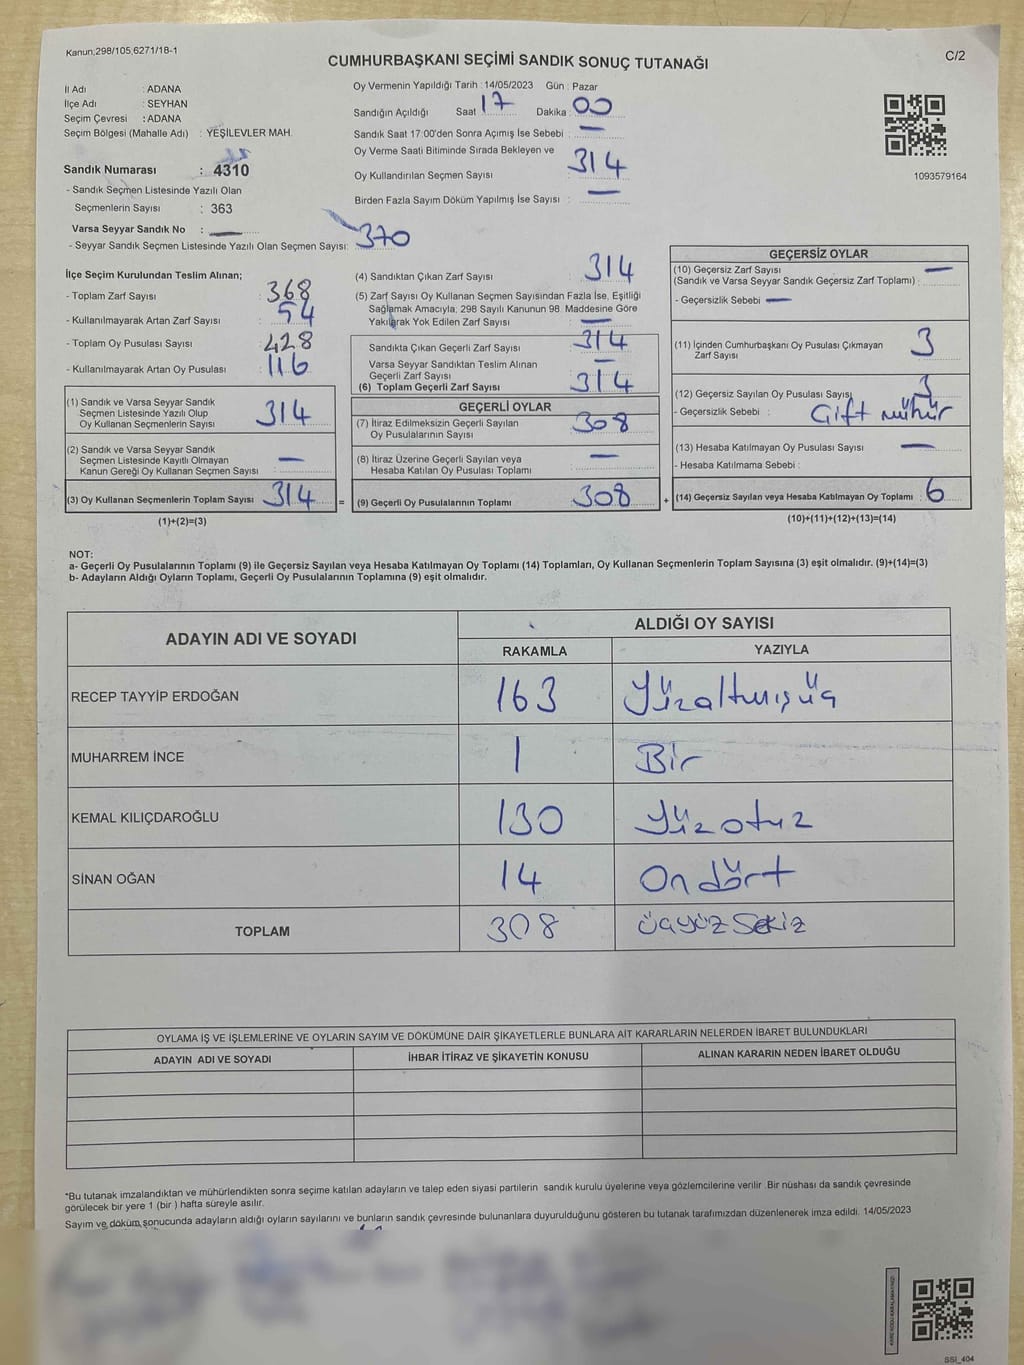 Kanun,298/105,6271/18-1
CUMHURBAŞKANI SEÇİMİ SANDIK SONUÇ TUTANAĞI
C/2
İl Adı : ADANA
İlçe Adı : SEYHAN
Seçim Çevresi : ADANA
Seçim Bölgesi (Mahalle Adı) : YEŞİLEVLER MAH.
Sandık Numarası : 4310
- Sandık Seçmen Listesinde Yazılı Olan
Seçmenlerin Sayısı : 363
Varsa Seyyar Sandık No : —
- Seyyar Sandık Seçmen Listesinde Yazılı Olan Seçmen Sayısı: 370
Oy Vermenin Yapıldığı Tarih : 14/05/2023 Gün : Pazar
Sandığın Açıldığı Saat 17 Dakika : 00
Sandık Saat 17:00'den Sonra Açımış İse Sebebi : —
Oy Verme Saati Bitiminde Sırada Bekleyen ve
Oy Kullandırılan Seçmen Sayısı : 314
Birden Fazla Sayım Döküm Yapılmış İse Sayısı : —
1093579164
İlçe Seçim Kurulundan Teslim Alınan;
- Toplam Zarf Sayısı : 368
- Kullanılmayarak Artan Zarf Sayısı : 54
- Toplam Oy Pusulası Sayısı : 428
- Kullanılmayarak Artan Oy Pusulası : 116
(1) Sandık ve Varsa Seyyar Sandık
Seçmen Listesinde Yazılı Olup
Oy Kullanan Seçmenlerin Sayısı : 314
(2) Sandık ve Varsa Seyyar Sandık
Seçmen Listesinde Kayıtlı Olmayan
Kanun Gereği Oy Kullanan Seçmen Sayısı : —
(3) Oy Kullanan Seçmenlerin Toplam Sayısı : 314 =
(1)+(2)=(3)
(4) Sandıktan Çıkan Zarf Sayısı : 314
(5) Zarf Sayısı Oy Kullanan Seçmen Sayısından Fazla İse, Eşitliği
Sağlamak Amacıyla; 298 Sayılı Kanunun 98. Maddesine Göre
Yakılarak Yok Edilen Zarf Sayısı : —
Sandıkta Çıkan Geçerli Zarf Sayısı : 314
Varsa Seyyar Sandıktan Teslim Alınan
Geçerli Zarf Sayısı : —
(6) Toplam Geçerli Zarf Sayısı : 314
GEÇERLİ OYLAR
(7) İtiraz Edilmeksizin Geçerli Sayılan
Oy Pusulalarının Sayısı : 308
(8) İtiraz Üzerine Geçerli Sayılan veya
Hesaba Katılan Oy Pusulası Toplamı : —
(9) Geçerli Oy Pusulalarının Toplamı : 308 +
GEÇERSİZ OYLAR
(10) Geçersiz Zarf Sayısı —
(Sandık ve Varsa Seyyar Sandık Geçersiz Zarf Toplamı) :
- Geçersizlik Sebebi : —
(11) İçinden Cumhurbaşkanı Oy Pusulası Çıkmayan
Zarf Sayısı : 3
(12) Geçersiz Sayılan Oy Pusulası Sayısı 3
- Geçersizlik Sebebi : Çift mühür
(13) Hesaba Katılmayan Oy Pusulası Sayısı : —
- Hesaba Katılmama Sebebi :
(14) Geçersiz Sayılan veya Hesaba Katılmayan Oy Toplamı : 6
(10)+(11)+(12)+(13)=(14)
NOT:
a- Geçerli Oy Pusulalarının Toplamı (9) ile Geçersiz Sayılan veya Hesaba Katılmayan Oy Toplamı (14) Toplamları, Oy Kullanan Seçmenlerin Toplam Sayısına (3) eşit olmalıdır. (9)+(14)=(3)
b- Adayların Aldığı Oyların Toplamı, Geçerli Oy Pusulalarının Toplamına (9) eşit olmalıdır.
ADAYIN ADI VE SOYADI
ALDIĞI OY SAYISI
RAKAMLA YAZIYLA
RECEP TAYYİP ERDOĞAN 163 Yüzaltmışüç
MUHARREM İNCE 1 Bir
KEMAL KILIÇDAROĞLU 130 Yüzotuz
SİNAN OĞAN 14 Ondört
TOPLAM 308 üçyüz Sekiz
OYLAMA İŞ VE İŞLEMLERİNE VE OYLARIN SAYIM VE DÖKÜMÜNE DAİR ŞİKAYETLERLE BUNLARA AİT KARARLARIN NELERDEN İBARET BULUNDUKLARI
ADAYIN ADI VE SOYADI İHBAR İTİRAZ VE ŞİKAYETİN KONUSU ALINAN KARARIN NEDEN İBARET OLDUĞU
*Bu tutanak imzalandıktan ve mühürlendikten sonra seçime katılan adayların ve talep eden siyasi partilerin sandık kurulu üyelerine veya gözlemcilerine verilir .Bir nüshası da sandık çevresinde
görülecek bir yere 1 (bir ) hafta süreyle asılır.
Sayım ve döküm sonucunda adayların aldığı oyların sayılarını ve bunların sandık çevresinde bulunanlara duyurulduğunu gösteren bu tutanak tarafımızdan düzenlenerek imza edildi. 14/05/2023
SSİ_404